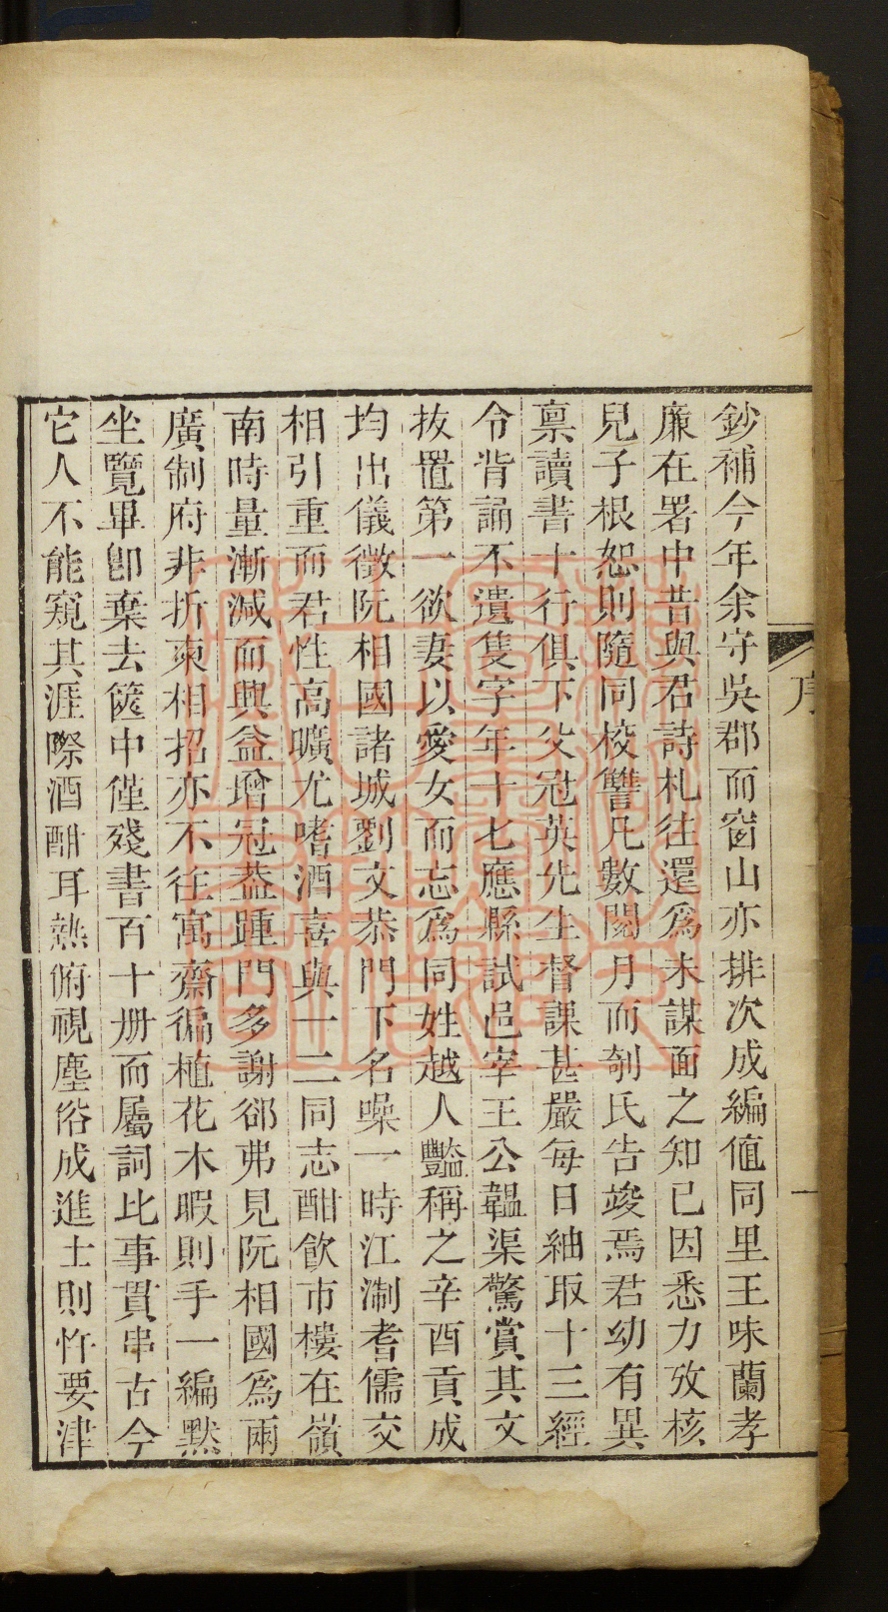 鈔補今年余守吳郡而窗山亦排次成編値同里王味蘭孝
廉在署中昔與君詩札往還爲未謀面之知已因悉力攷核
兒子根恕則隨同校讐凡數閱月而剞氏告竣焉君幼有異
禀讀書十行俱下父冠英先生督課甚嚴每日紬取十三經
令背誦不遺隻字年十七應縣試邑宰王公韞渠驚賞其文
拔置第一欲妻以愛女而志爲同姓越人豔稱之辛酉貢成
均出儀徵阮相國諸城劉文恭門下名噪一時江淛耆儒交
相引重而君性高曠尤嗜酒喜與一二同志酣飲市樓在嶺
南時量漸減而興益增冠葢踵門多謝郤弗見阮相國爲兩
廣制府非折柬相招亦不往寓齋徧植花木暇則手一編默
坐覽畢卽棄去篋中僅殘書百十册而屬詞比事貫串古今
它人不能窺其涯際酒酣耳熱俯視塵俗成進士則忤要津
序
一